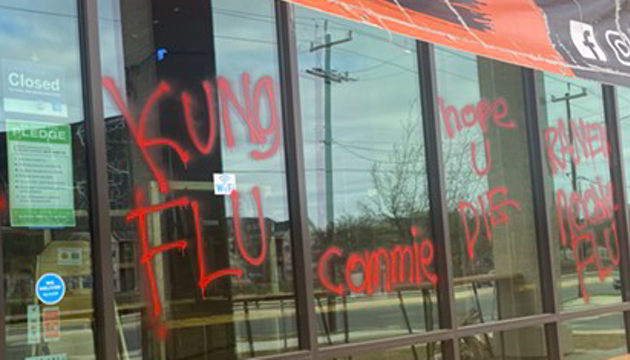 Closed
PLEDGE
WiFi
KUNG
FLU
commie
hope
U
DIE
RAMEN
NOODLE
FLU